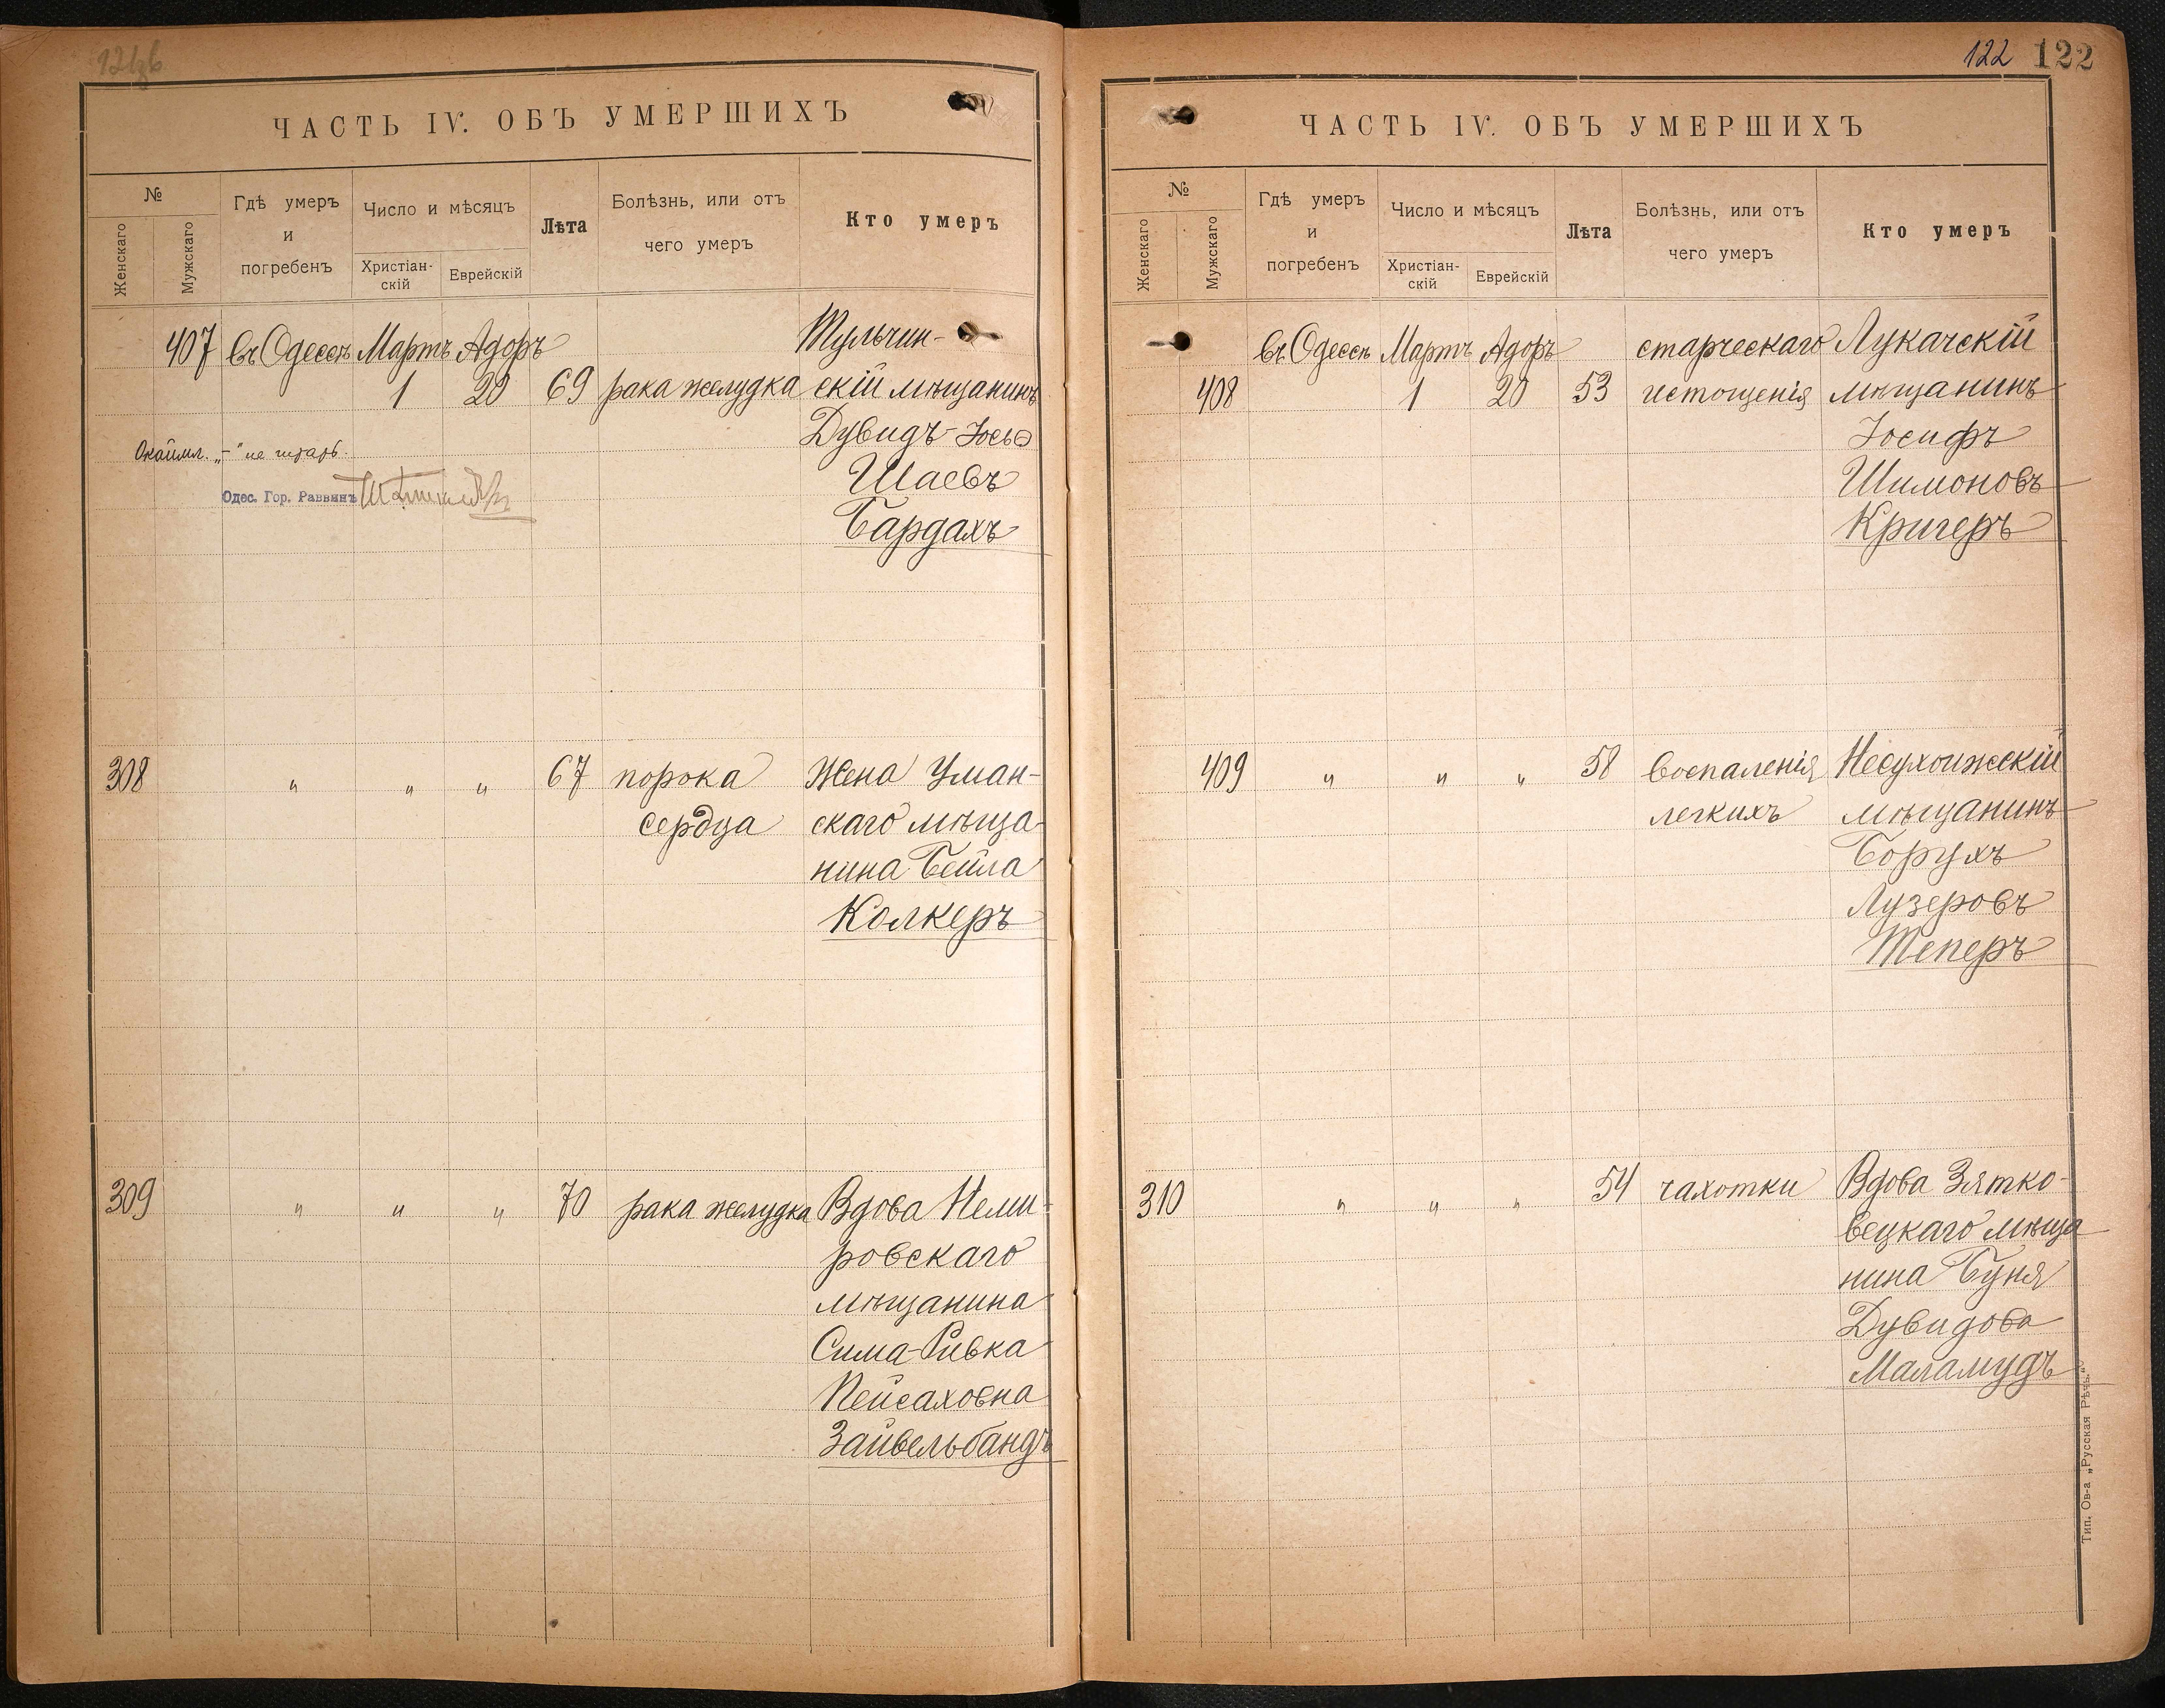 ЧАСТЬ IV. ОБЪ УМЕРШИХЪ
№
Женскаго
Мужскаго
Гдѣ умеръ
и
погребенъ
Число и мѣсяцъ
Христіан-
скій
Еврейскій
Лѣта
Болѣзнь, или отъ
чего умеръ
Кто умеръ
407 въ Одессѣ Мартъ Адоръ Тульчин-
1 20 69 рака желудка скій мѣщанинъ
Дувидъ-Іось
Шаевъ
Бардахъ
Одес. Гор. Раввинъ
308 " " " 67 порока Жена Уман-
сердца скаго мѣща-
нина Бейла
Колкеръ
309 " " " 70 рака желудка Вдова Неми-
ровскаго
мѣщанина
Сима-Ривка
Пейсаховна
Зайвельбандъ
122 122
ЧАСТЬ IV. ОБЪ УМЕРШИХЪ
№
Женскаго
Мужскаго
Гдѣ умеръ
и
погребенъ
Число и мѣсяцъ
Христіан-
скій
Еврейскій
Лѣта
Болѣзнь, или отъ
чего умеръ
Кто умеръ
въ Одессѣ Мартъ Адоръ старческаго Лукачскій
408 1 20 53 истощенія мѣщанинъ
Іосифъ
Шимоновъ
Кригеръ
409 " " " 58 воспаленія Несухоижскій
легкихъ мѣщанинъ
Борухъ
Лузеровъ
Теперъ
310 " " " 54 чахотки Вдова Зятко-
вецкаго мѣща
нина Буня
Дувидова
Маламудъ
Тип. Ов-а „Русская Рѣчь."